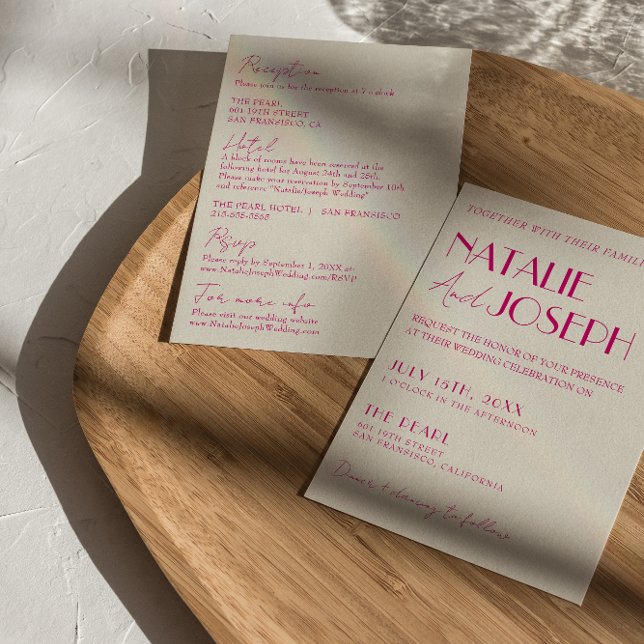 Reception
Please join us for the reception at 7 o'clock
THE PEARL
601 19TH STREET
SAN FRANSISCO, CA
Hotel
A block of rooms have been reserved at the
following hotel for August 24th and 25th.
Please make your reservation by September 10th
and reference "Natalie/Joseph Wedding"
THE PEARL HOTEL | SAN FRANSISCO
215.555.5555
Rsvp
Please reply by September 1, 20XX at:
www.NatalieJosephWedding.com/RSVP
For more info
Please visit our wedding website
www.NatalieJosephWedding.com
TOGETHER WITH THEIR FAMILI
NATALIE
And JOSEPH
REQUEST THE HONOR OF YOUR PRESENCE
AT THEIR WEDDING CELEBRATION ON
JULY 15TH, 20XX
1 O'CLOCK IN THE AFTERNOON
THE PEARL
601 19TH STREET
SAN FRANSISCO, CALIFORNIA
Dinner + dancing to follow